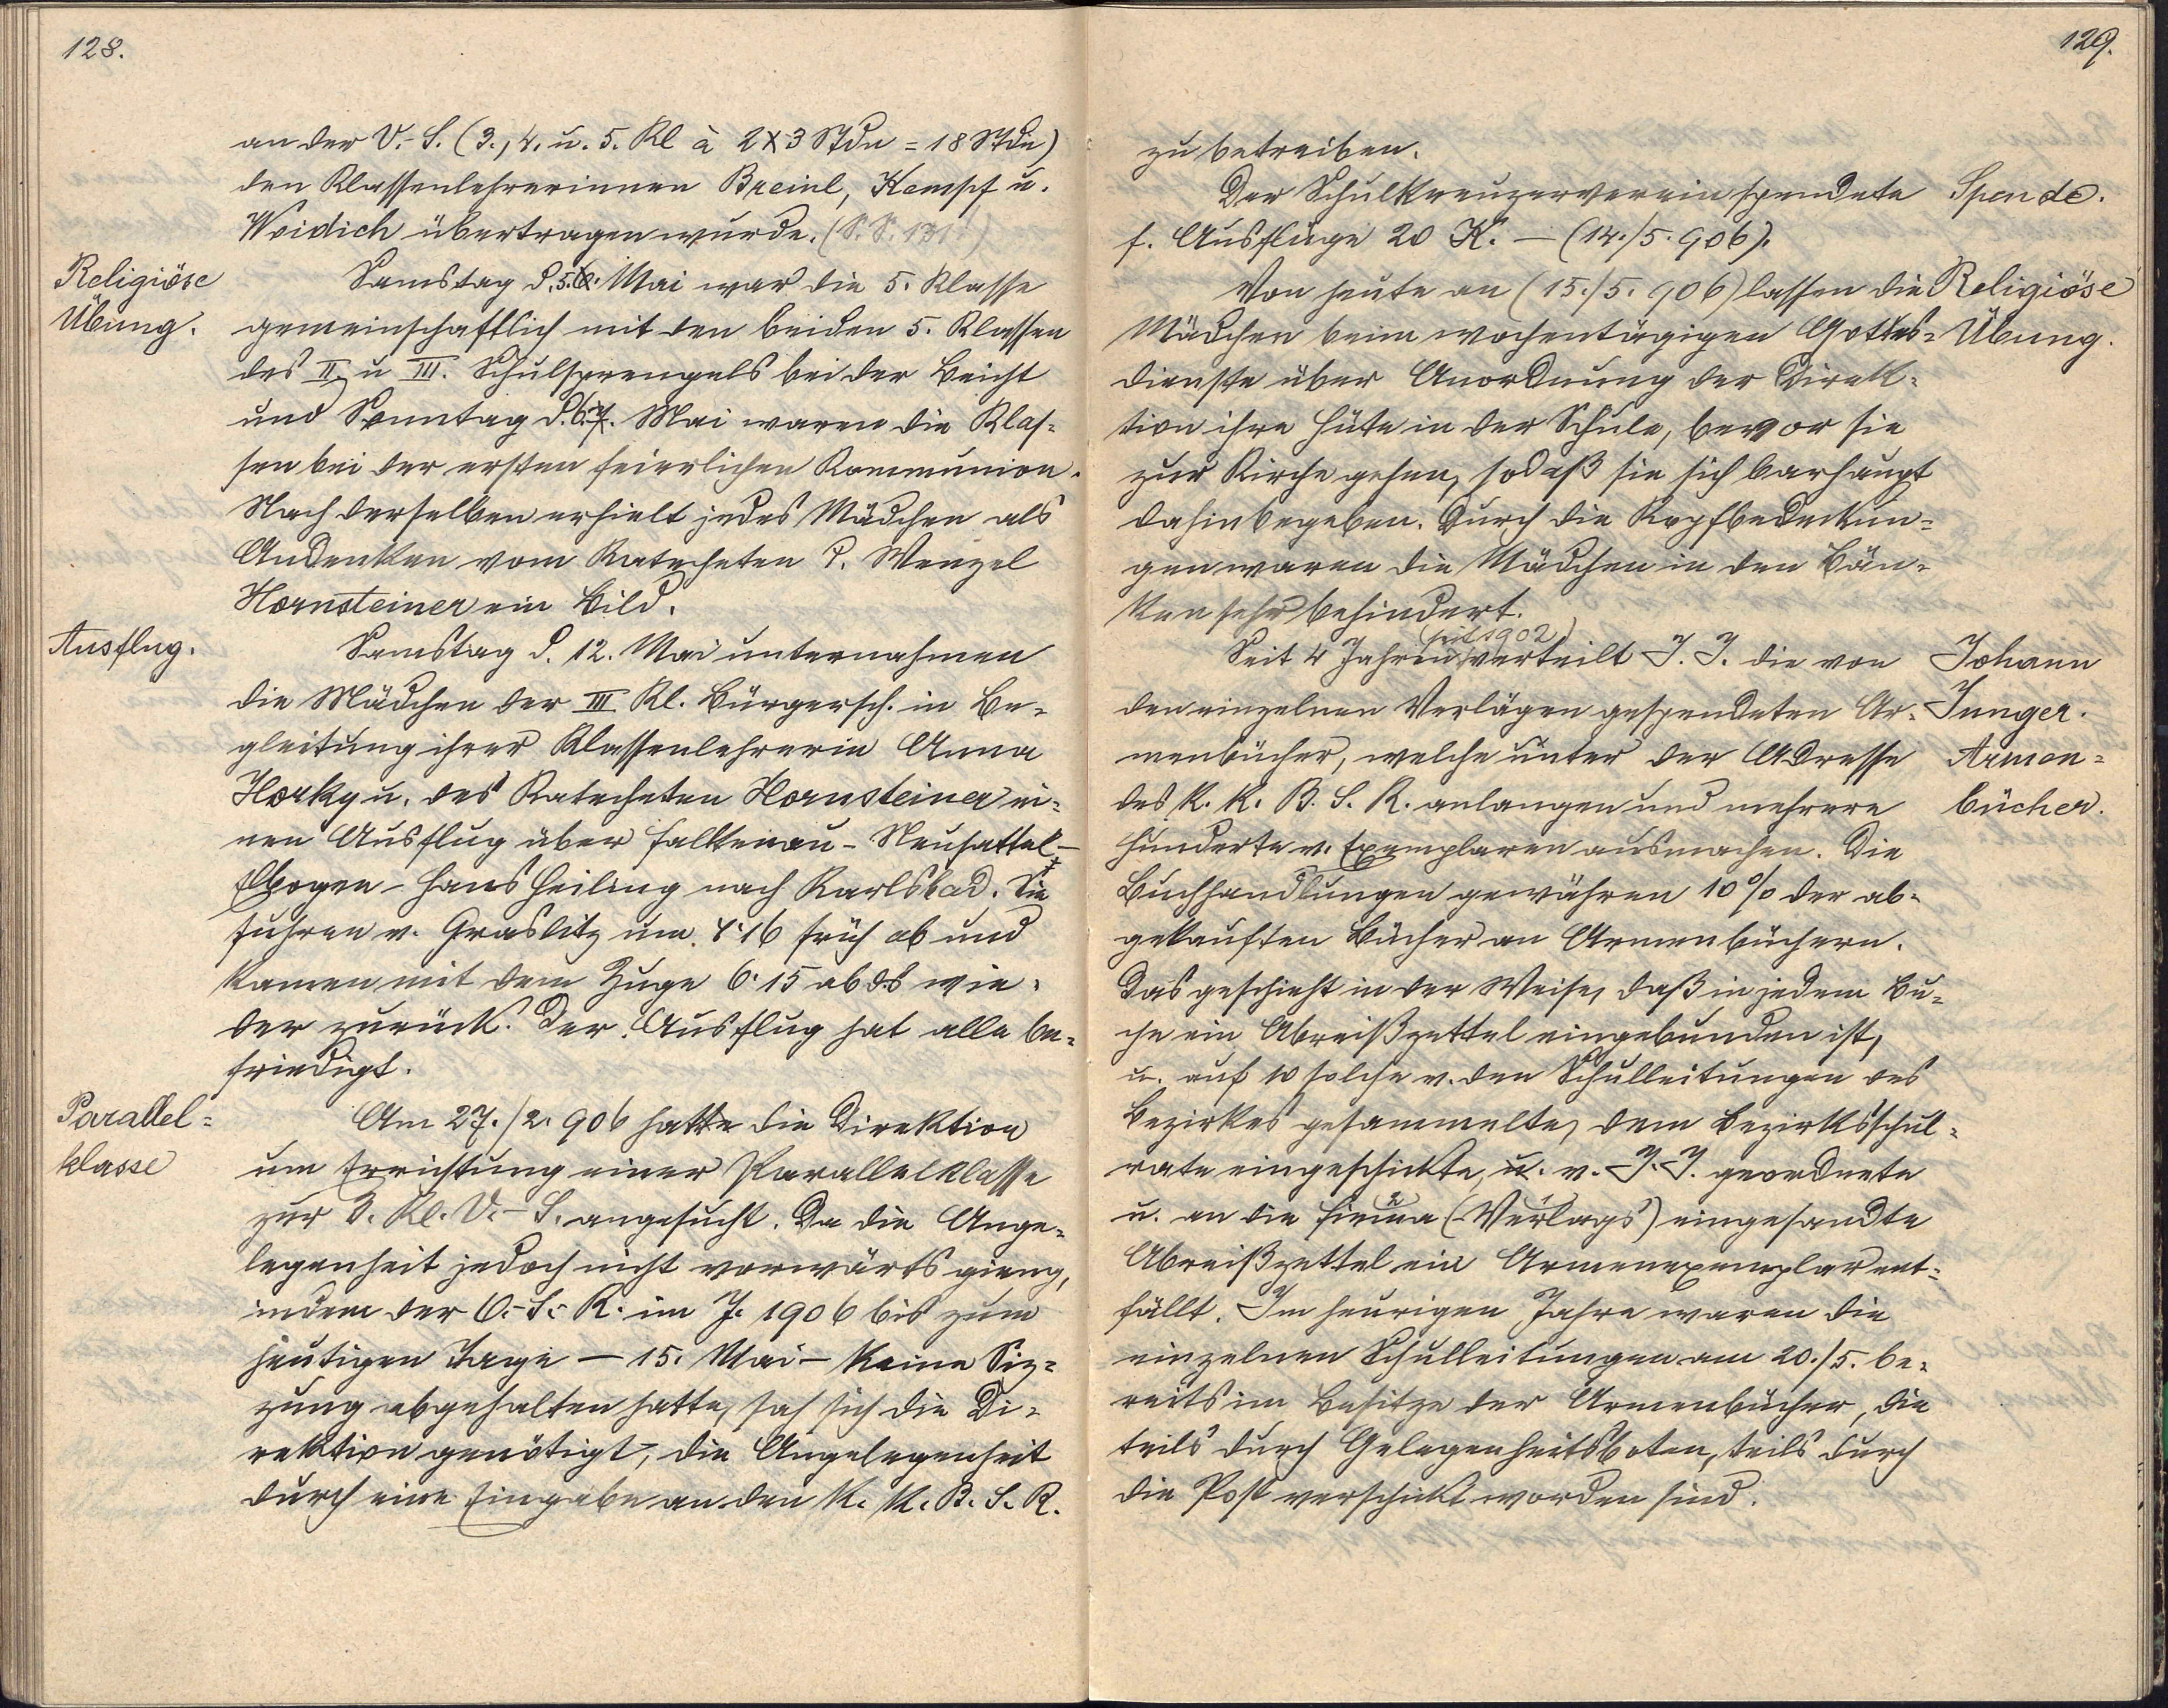 128.
an der V.-S. (3., 4. u. 5. Kl à 2x3 Stdn = 18 Stdn)
den Klassenlehrerinnen Breinl, Kempf u.
Weidich übertragen wurde. (S. S. 131)
Religiöse
Übung.
Samstag d. 5. 6. Mai war die 5. Klasse
gemeinschaftlich mit den beiden 5. Klassen
des II. u III. Schulsprengels bei der Beicht
und Sonntag d. 6. 7. Mai waren die Klas-
sen bei der ersten feierlichen Kommunion.
Nach derselben erhielt jedes Mädchen als
Andenken vom Katecheten P. Wenzel
Hornsteiner ein Bild.
Ausflug.
Samstag d. 12. Mai unternahmen
die Mädchen der III Kl. Bürgersch. in Be-
gleitung ihrer Klassenlehrerin Anna
Horky u. des Katecheten Hornsteiner ei-
nen Ausflug über Falkenau - Neusattel -
Elbogen - Hans Heiling nach Karlsbad. Sie
fuhren v. Graslitz um 4·16 früh ab und
kamen mit dem Zuge 6·15 abds wie-
der zurück. Der Ausflug hat alle be-
friedigt.
Parallel-
klasse
Am 27./2. 906 hatte die Direktion
um Errichtung einer Parallelklasse
zur 3. Kl. V.-S. angesucht. Da die Ange-
legenheit jedoch nicht vorwärts gieng,
indem der O.-S.-R. im J. 1906 bis zum
heutigen Tage — 15. Mai — keine Siz-
zung abgehalten hatte, sah sich die Di-
rektion genötigt, die Angelegenheit
durch eine Eingabe an den k. k. B. S. R.
129.
zu betreiben.
Der Schulkreuzerverein spendete
f. Ausflüge 20 K. — (14./5. 906).
Spende.
Von heute an (15./5. 906) lassen die
Mädchen beim wochentägigen Gottes-
dienste über Anordnung der Direk-
tion ihre Hüte in der Schule, bevor sie
zur Kirche gehen, sodaß sie sich barhaupt
dahinbegeben. Durch die Kopfbedeckun-
gen waren die Mädchen in den Bän-
ken sehr behindert.
Religiöse
Übung.
(seit 1902)
Seit 4 Jahren verteilt J. J. die von
den einzelnen Verlägen gespendeten Ar-
menbücher, welche unter der Adresse
des k. k. B. S. R. anlangen und mehrere
Hunderte v. Exemplaren ausmachen. Die
Buchhandlungen gewähren 10% der ab-
gekauften Bücher an Armenbüchern.
Das geschieht in der Weise, daß in jedem Bu-
che ein Abreißzettel eingebunden ist,
u. auf 10 solche v. den Schulleitungen des
Bezirkes gesammelte, dem Bezirksschul-
rate eingeschickte, u. v. J. J. geordnete
u. an die Firma (Verlags) eingesandte
Abreißzettel ein Armenexemplar ent-
fällt. Im heurigen Jahre waren die
einzelnen Schulleitungen am 20./5. be-
reits im Besitze der Armenbücher, die
teils durch Gelegenheitsboten, teils durch
die Post verschickt worden sind.
Johann
Junger.
Armen-
bücher.